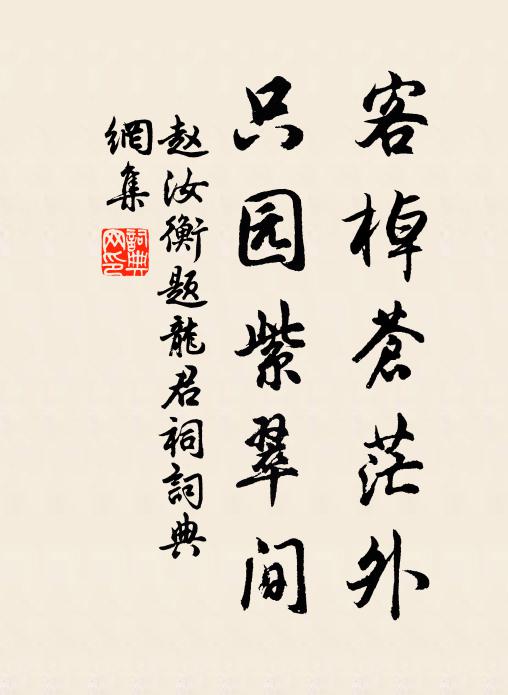 客棹苍茫外
只园紫翠间
赵汝衡题龍君祠詞典
網集
詞典
网印